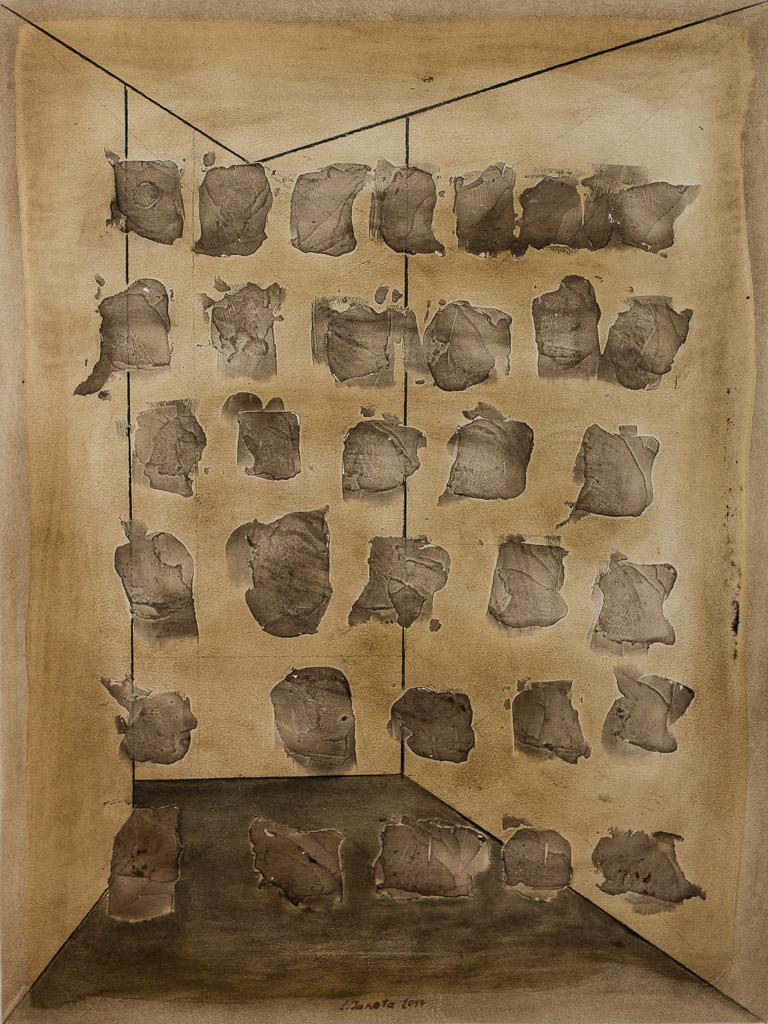 L. Janota 2014